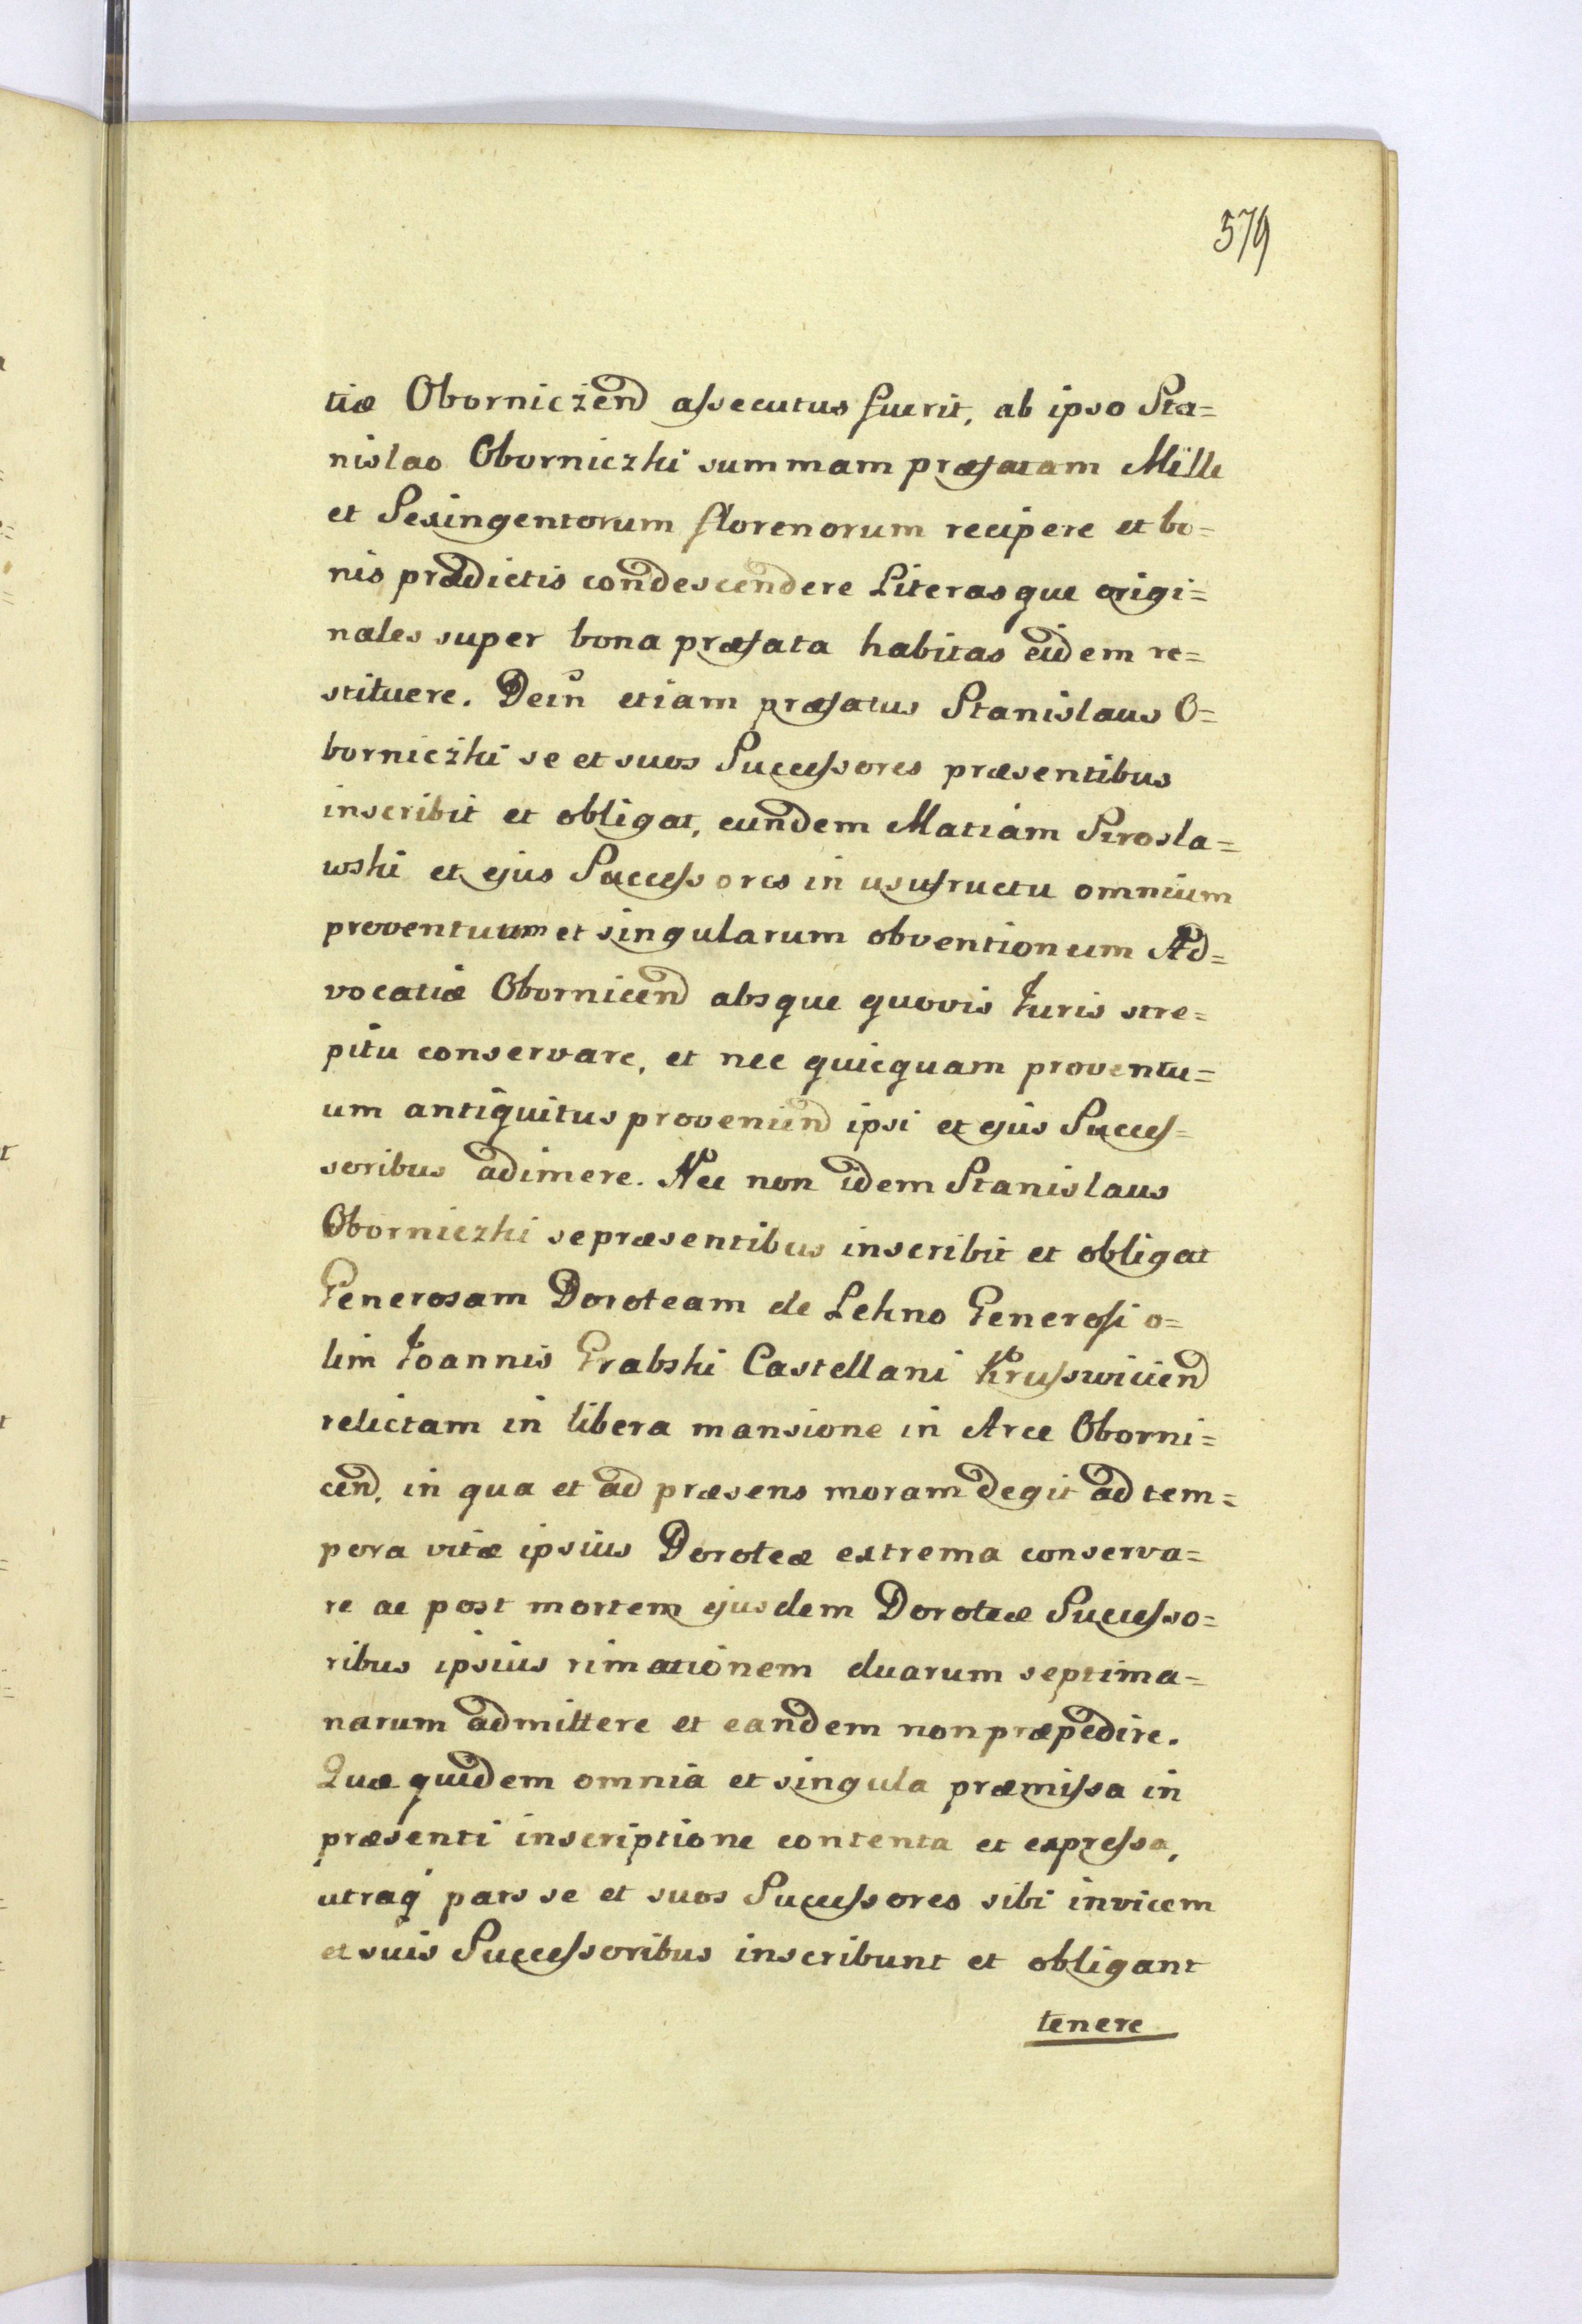 579
tiæ Oborniczend assecutus fuerit, ab ipso Sta=
nislao Oborniczki summam præfatam Mille
et Sexingentorum florenorum recipere et bo=
nis prædictis condescendere Literasque origi=
nales super bona præfata habitas eidem re=
stituere. Dein etiam præfatus Stanislaus O=
borniczki se et suos Successores præsentibus
inscribit et obligat, eundem Matiam Sirosla=
wski et ejus Successores in usufructu omnium
proventuum et singularum obventionum Ad=
vocatiæ Obornicend absque quovis Juris stre=
pitu conservare, et nec quicquam proventu=
um antiquitus proveniend ipsi et ejus Succes=
soribus adimere. Nec non idem Stanislaus
Oborniczki se præsentibus inscribit et obligat
Generosam Doroteam de Lekno Generosi o=
lim Joannis Grabski Castellani Krusswiciend
relictam in libera mansione in Arce Oborni=
cend, in qua et ad præsens moram degit ad tem=
pora vitæ ipsius Doroteæ extrema conserva=
re ac post mortem ejusdem Doroteæ Successo=
ribus ipsius rimationem duarum septima=
narum admittere et eandem non præpedire.
Quæ quidem omnia et singula præmissa in
præsenti inscriptione contenta et expressa,
utraq pars se et suos Successores sibi invicem
et suis Successoribus inscribunt et obligant
tenere